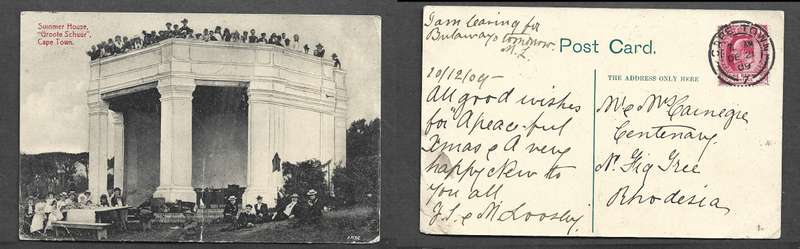 Summer House,
"Groote Schuur",
Cape Town.
I am leaving for
Bulawayo tomorrow
Post Card.
CAPE TOWN
DE 21
09
7
THE ADDRESS ONLY HERE
20/12/09-
All good wishes
for "A peaceful
Xmas & A very
happy New to
you all
J.S. & M Loosley
Mr & Mrs Carnegie
Centenary
Nr Fig Tree
Rhodesia